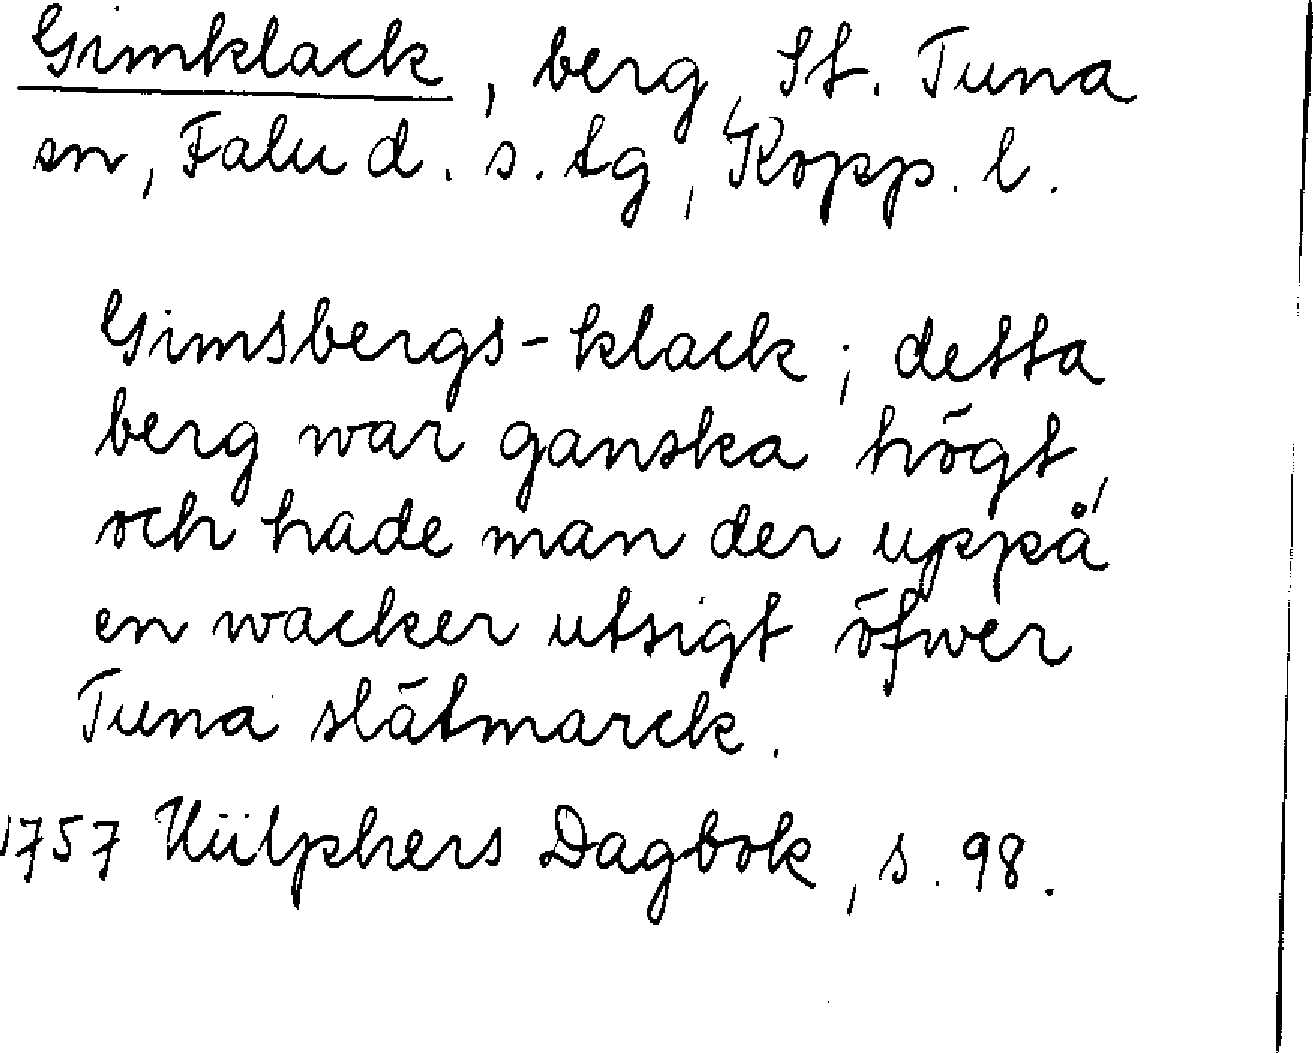 Gimklack, berg, St. Tuna
sn, Falu d. s. tg, Kopp. l.
Gimsbergs-klack; detta
berg war ganska högt,
och hade man der uppå
en wacker utsigt öfwer
Tuna slätmarck.
1757 Hülphers Dagbok, s. 98.